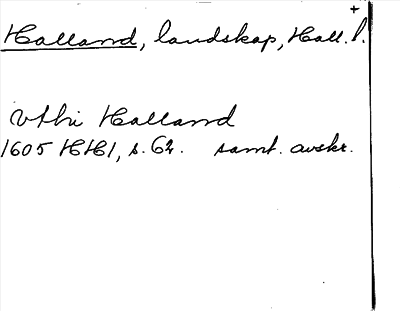 +
Halland, landskap, Hall. l.
vthi Halland
1605 HH1, s. 62. samt. avskr.